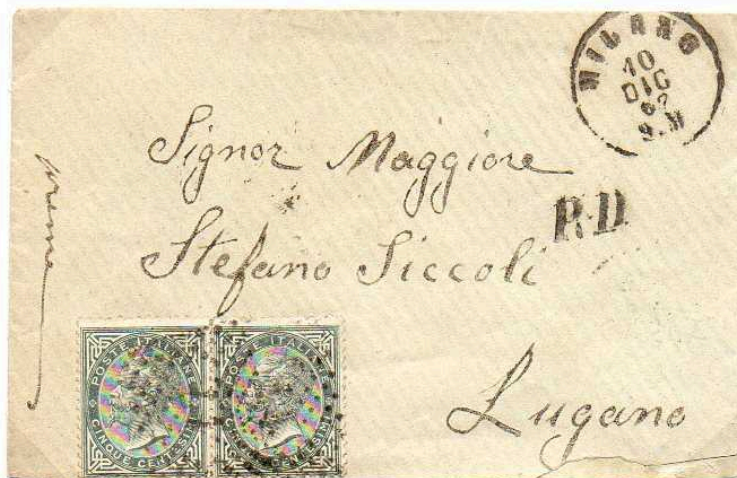 MILANO
10
DIC
67
Signor Maggiore
P.D
Stefano Siccoli
preme
POSTE ITALIANE
CINQUE CENTESIMI
POSTE ITALIANE
CINQUE CENTESIMI
Lugano